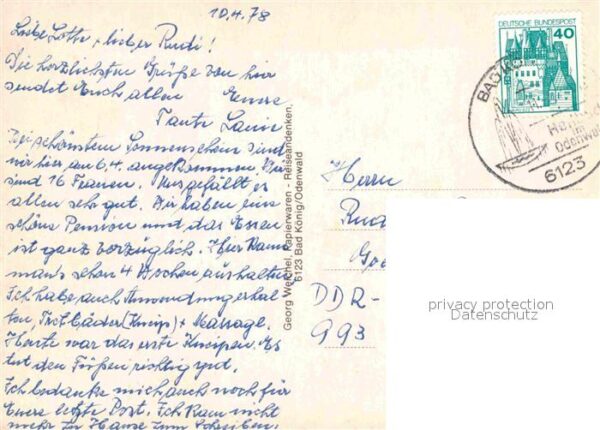 10.4.78
Liebe Lotte + lieber Rudi!
Die herzlichsten Grüße von hier
sendet Euch allen Eure
Tante
Bei schönstem Sonnenschein sind
wir hier am 6.4. angekommen. Wir
sind 16 Frauen. Uns gefällt es
allen sehr gut. Wir haben eine
schöne Pension und das Essen
ist ganz vorzüglich. Hier kann
man's schon 4 Wochen aushalten
Ich habe auch Anwendung erhal-
ten, Tretbäder (Kneip) + Massage.
Heute war das erste Kneipen. Es
tut den Füßen richtig gut.
Ich bedanke mich auch noch für
Eure letzte Post. Ich kam nicht
mehr zu Hause zum Schreiben.
Georg Weichel, Papierwaren - Reiseandenken,
6123 Bad König/Odenwald
DEUTSCHE BUNDESPOST
40
BAD
im
Odenwald
6123
Herrn
Rud
DDR-
993
privacy protection
Datenschutz